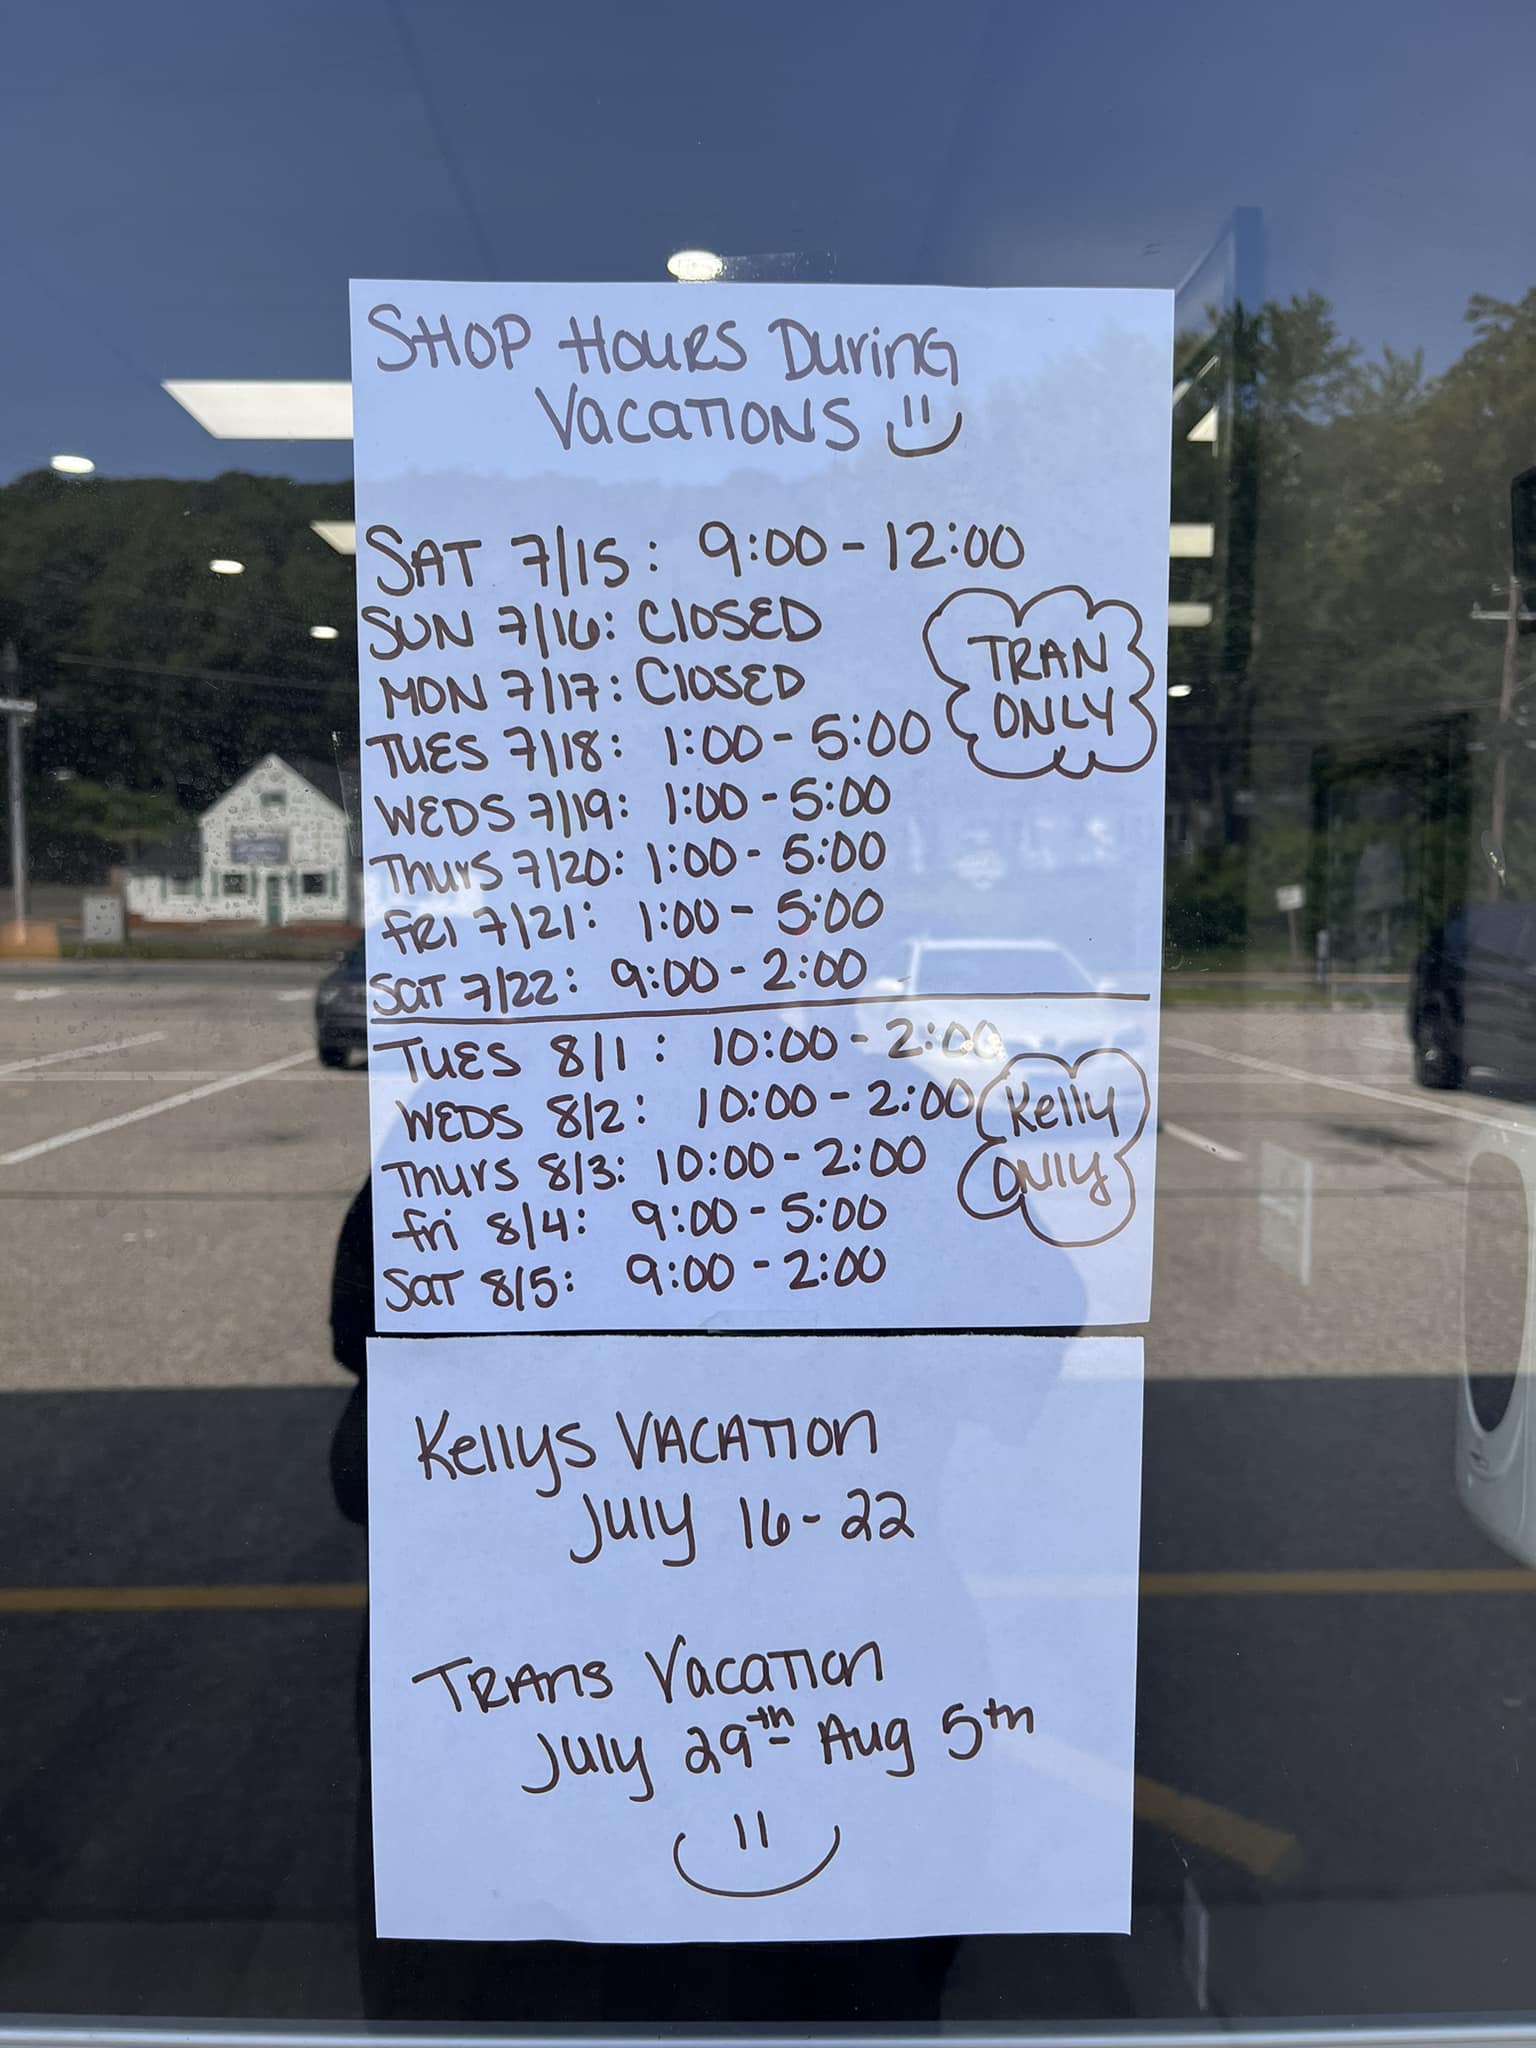 SHOP HOURS DURING
VACATIONS
SAT 7/15: 9:00 - 12:00
SUN 7/16: CLOSED
MON 7/17: CLOSED
TRAN
ONLY
TUES 7/18: 1:00 - 5:00
WEDS 7/19: 1:00 - 5:00
Thurs 7/20: 1:00 - 5:00
FRI 7/21: 1:00 - 5:00
SAT 7/22: 9:00 - 2:00
TUES 8/1: 10:00 - 2:00
WEDS 8/2: 10:00 - 2:00
Kelly
ONly
Thurs 8/3: 10:00 - 2:00
fri 8/4: 9:00 - 5:00
SAT 8/5: 9:00 - 2:00
Kellys VACATION
July 16 - 22
TRANS VACATION
July 29th - Aug 5th